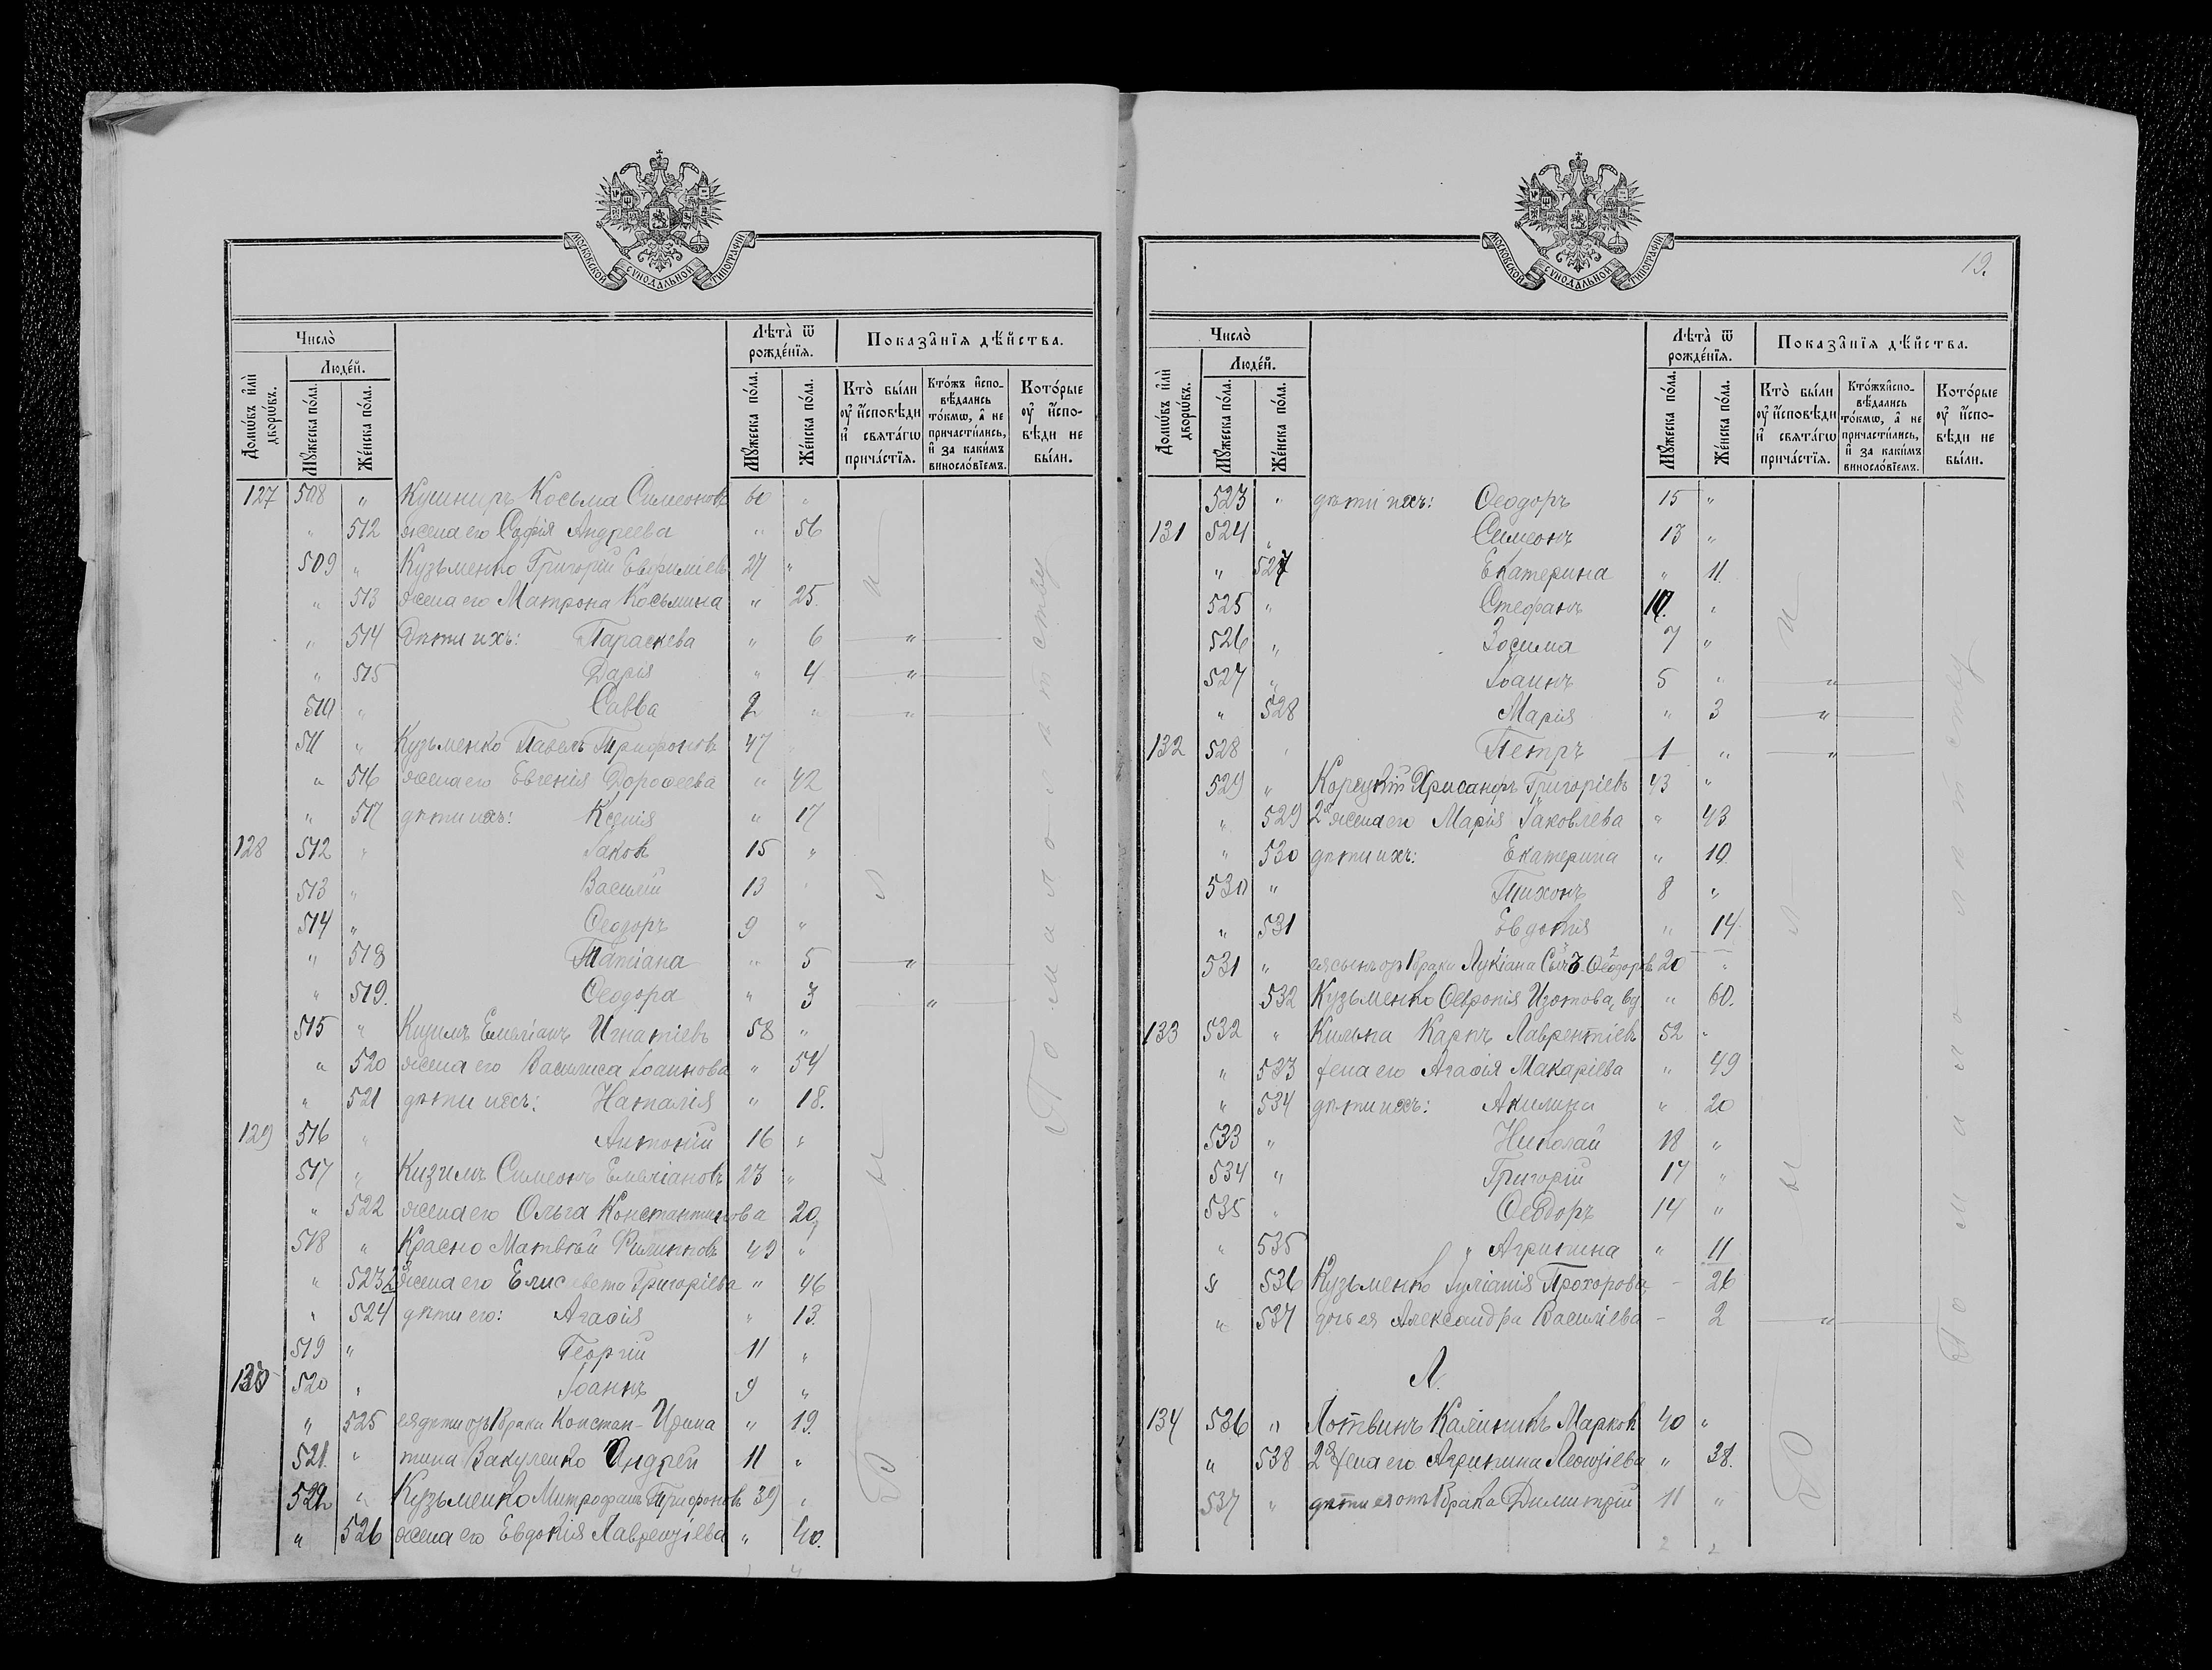 МОСКОВСКОЙ СѴНОДАЛЬНОЙ ТИПОГРАФІИ
Число̀
Людей.
Домѡвъ и҆лѝ дворѡвъ.
Мꙋжеска по́ла.
Же́нска по́ла.
Лѣта̀ ѿ рожде́нїѧ.
Мꙋжеска по́ла.
Же́нска по́ла.
Показа̑нїѧ дѣ́йства.
Кто̀ бы́ли ᲂу҆ и҆сповѣди и҆ свѧта́гѡ прича́стїѧ.
Кто́жъ и҆спо-вѣдались то́кмѡ, а҆ не причасти́лись, и҆ за каки́мъ винослові́емъ.
Кото́рые ᲂу҆ и҆спо-вѣди не бы́ли.
127 508 " Кушниръ Косьма Симеоновъ 60 "
" 512 жена его Софія Андреева " 56
509 " Кузьменко Григорій Евфиміевъ 27 "
" 513 жена его Матрона Косьмина " 25.
" 514 Дѣти ихъ: Параскева " 6 "
" 515 Дарія " 4 "
510 " Савва 2 " "
511 " Кузьменко Павелъ Трифоновъ 47 "
" 516 жена его Евгенія Дороѳеева " 42
" 517 дѣти ихъ: Ксенія " 17
128 512 " Іаковъ 15 "
513 " Василій 13 "
514 " Ѳеодоръ 9 "
" 518 Татіана " 5 "
" 519. Ѳеодора " 3 "
515 " Кизимъ Емеліанъ Игнатіевъ 58 "
" 520 жена его Василиса Іоаннова " 54
" 521 дѣти ихъ: Наталія " 18.
129 516 " Антоній 16 "
517 " Кизимъ Симеонъ Емеліановъ 23 "
" 522 жена его Ольга Константинова 20
518 " Красно Матвѣй Филиповъ 49 "
" 523 2я жена его Елисавета Григоріева " 46
" 524 дѣти его: Агаѳія " 13.
519 " Георгій 11 "
130 520 " Іоаннъ 9 "
" 525 ея дѣти отъ 1 брака Констан- Ирина " 19.
521. " тина Вакуленко Андрей 11 "
522 " Кузьменко Митрофанъ Трифоновъ 39 "
" 526 жена его Евдокія Лаврентіева " 40.
По малолѣтству
МОСКОВСКОЙ СѴНОДАЛЬНОЙ ТИПОГРАФІИ
19.
Число̀
Людей.
Домѡвъ и҆лѝ дворѡвъ.
Мꙋжеска по́ла.
Же́нска по́ла.
Лѣта̀ ѿ рожде́нїѧ.
Мꙋжеска по́ла.
Же́нска по́ла.
Показа̑нїѧ дѣ́йства.
Кто̀ бы́ли ᲂу҆ и҆сповѣди и҆ свѧта́гѡ прича́стїѧ.
Кто́жъ и҆спо-вѣдались то́кмѡ, а҆ не причасти́лись, и҆ за каки́мъ винослові́емъ.
Кото́рые ᲂу҆ и҆спо-вѣди не бы́ли.
523 " дѣти ихъ: Ѳеодоръ 15 "
131 524 " Симеонъ 13 "
" 527 Екатерина " 11
525 " Стефанъ 10. "
526 " Зосима 7 "
527 " Іоаннъ 5 " "
" 528 Марія " 3 "
132 528 " Петръ 1 " "
529 " Хрисанфъ Григоріевъ 43 "
" 529 2я жена его Марія Іаковлева " 43
" 530 дѣти ихъ: Екатерина " 10
530 " Тихонъ 8 "
" 531 Евдокія " 14
531 " ея сынъ отъ 1 брака Лукіана Ѳеодоръ 20 "
532 Кузьменко Изотова, вд. " 60.
133 532 " Кильпа Карпъ Лаврентіевъ 52 "
" 533 жена его Агаѳія Макаріева " 49
" 534 дѣти ихъ: Акилина " 20
533 " Николай 18 "
534 " Григорій 17 "
535 " Ѳеодоръ 14 "
" 535 Агрипина " 11
" 536 Кузьменко Іуліанія Прохорова, - 26
" 537 дочь ея Александра Василіева - 2 "
Л.
134 536 " Лотвинъ Калиникъ Марковъ 40 "
" 538 2я жена его Агрипина Леонтіева " 38.
537 " дѣти ея отъ 1 брака Димитрій 11 "
По малолѣтству